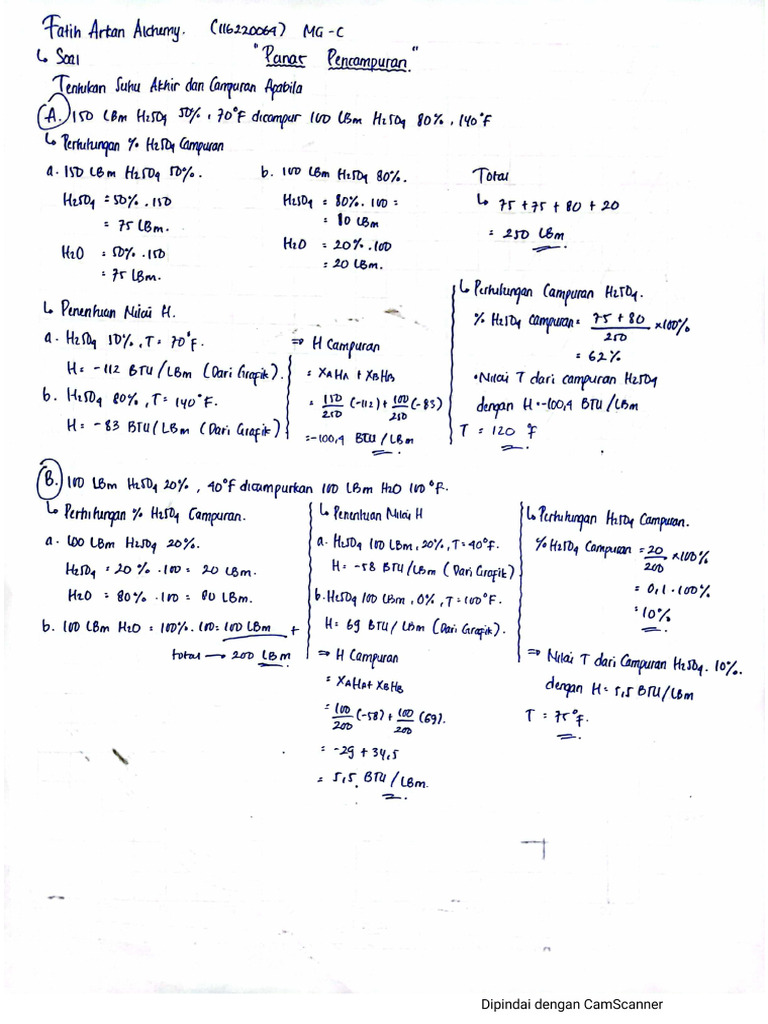 Fatih Arkan Alchemy. (116220064) MG-C
↳ Soal "Panas Pencampuran"
Tentukan Suhu Akhir dan Campuran Apabila
A. 150 LBm H2SO4 50%, 70°F dicampur 100 LBm H2SO4 80%, 140°F
↳ Perhitungan % H2SO4 Campuran
a. 150 LBm H2SO4 50%.
H2SO4 = 50% . 150
= 75 LBm.
H2O = 50% . 150
= 75 LBm.
b. 100 LBm H2SO4 80%.
H2SO4 = 80% . 100 =
= 80 LBm
H2O = 20% . 100
= 20 LBm.
Total
↳ 75 + 75 + 80 + 20
= 250 LBm
↳ Penentuan Nilai H.
a. H2SO4 50%, T = 70°F.
H = -112 BTU/LBm (Dari Grafik).
b. H2SO4 80%, T = 140°F.
H = -83 BTU/LBm (Dari Grafik)
⇒ H Campuran
= XAHA + XBHB
= 150/250 (-112) + 100/250 (-83)
= -100,4 BTU/LBm
↳ Perhitungan Campuran H2SO4.
% H2SO4 Campuran = 75 + 80/250 x 100%
= 62%
• Nilai T dari campuran H2SO4
dengan H = -100,4 BTU/LBm
T = 120 °F
B. 100 LBm H2SO4 20%, 40°F dicampurkan 100 LBm H2O 100°F.
↳ Perhitungan % H2SO4 Campuran.
a. 100 LBm H2SO4 20%.
H2SO4 = 20% . 100 = 20 LBm.
H2O = 80% . 100 = 80 LBm.
b. 100 LBm H2O = 100% . 100 = 100 LBm +
total → 200 LBm
↳ Penentuan Nilai H
a. H2SO4 100 LBm, 20%, T = 40°F.
H = -58 BTU/LBm (Dari Grafik)
b. H2SO4 100 LBm, 0%, T = 100°F.
H = 69 BTU/LBm (Dari Grafik).
⇒ H Campuran
= XAHA + XBHB
= 100/200 (-58) + 100/200 (69).
= -29 + 34,5
= 5,5 BTU/LBm.
↳ Perhitungan H2SO4 Campuran.
% H2SO4 Campuran = 20/200 x 100%
= 0,1 . 100%
= 10%
⇒ Nilai T dari Campuran H2SO4 10%.
dengan H = 5,5 BTU/LBm
T = 75°F.
Dipindai dengan CamScanner